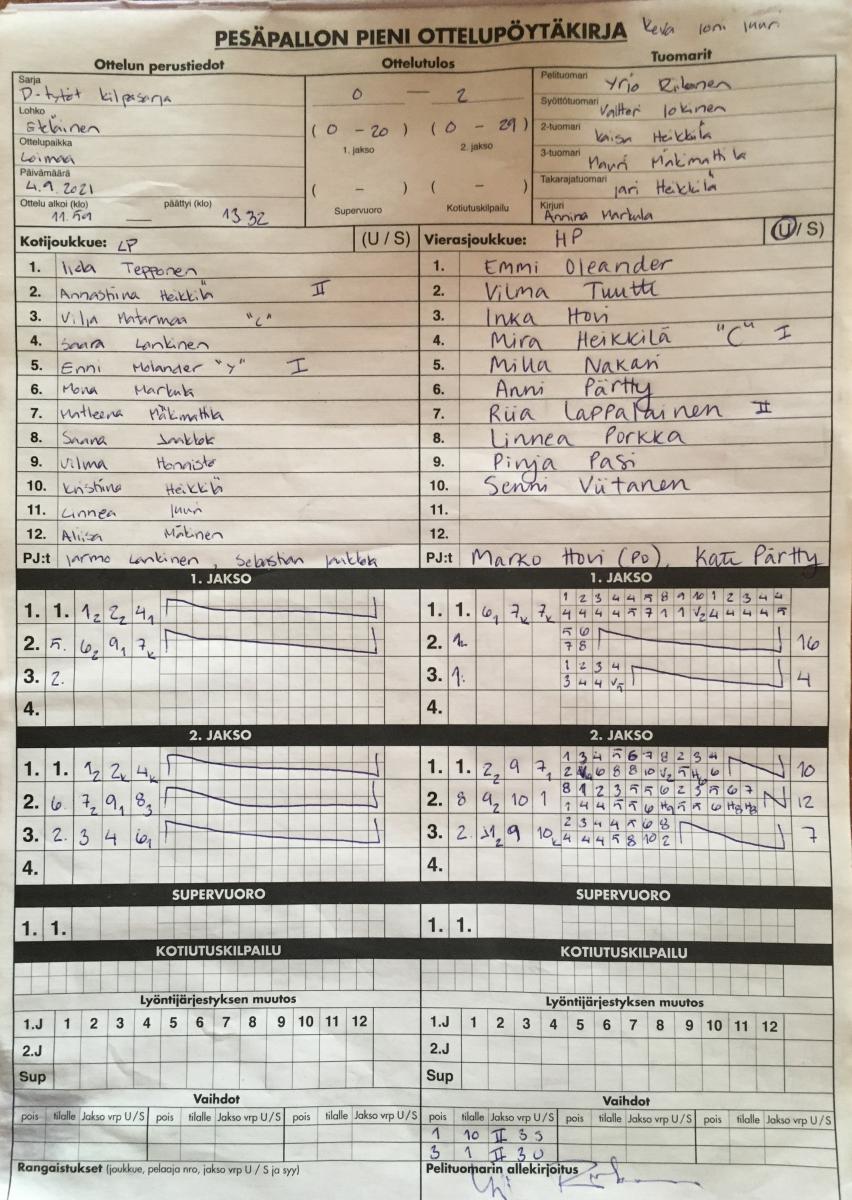 PESÄPALLON PIENI OTTELUPÖYTÄKIRJA
Ottelun perustiedot
Sarja
D-tytöt kilpasarja
Lohko
Eteläinen
Ottelupaikka
Loimaa
Päivämäärä
4.9.2021
Ottelu alkoi (klo) päättyi (klo)
11.59 — 13.32
Ottelutulos
0 — 2
( 0 - 20 ) ( 0 - 29 )
1. jakso 2. jakso
( - ) ( - )
Supervuoro Kotiutuskilpailu
Tuomarit
Pelituomari Yrjö
Syöttötuomari Valtteri Jokinen
2-tuomari Kaisa Heikkilä
3-tuomari Mauri Mäkimattila
Takarajatuomari Jari Heikkilä
Kirjuri
Annina Markula
Kotijoukkue: LP (U / S)
1. Iida Tepponen
2. Annastiina Heikkilä II
3. Vilja "C"
4. Saara Lankinen
5. Enni Molander "Y" I
6. Mona Markula
7. Matleena Mäkimattila
8. Sanna
9. Vilma
10. Kristiina Heikkilä
11. Linnea Juuri
12. Aliisa Mäkinen
PJ:t Jarmo Lankinen, Sebastian
Vierasjoukkue: HP (U / S)
1. Emmi Oleander
2. Vilma Tuutti
3. Inka Hovi
4. Mira Heikkilä "C" I
5. Milla Nakari
6. Anni Pärtty
7. Riia Lappalainen II
8. Linnea Porkka
9. Pinja Pasi
10. Senni Viitanen
11.
12.
PJ:t Marko Hovi (PO), Kati Pärtty
1. JAKSO
1. 1. 1₂ 2₂ 4₁
2. 5. 6₂ 9₁ 7ₖ
3. 2.
4.
2. JAKSO
1. 1. 1₂ 2ₖ 4ₖ
2. 6. 7₂ 9₁ 8₃
3. 2. 3 4 6₁
4.
SUPERVUORO
1. 1.
KOTIUTUSKILPAILU
Lyöntijärjestyksen muutos
1.J 1 2 3 4 5 6 7 8 9 10 11 12
2.J
Sup
Vaihdot
pois tilalle Jakso vrp U / S pois tilalle Jakso vrp U / S pois tilalle Jakso vrp U / S
Rangaistukset (joukkue, pelaaja nro, jakso vrp U / S ja syy)
1. JAKSO
1 2 3 4 4 5 8 9 10 1 2 3 4 4
1. 1. 6₁ 7ₖ 7ₖ
5 6
2. 16
7 8
1 2 3 4
3. 1. 4
4.
2. JAKSO
1 3 4 5 6 7 8 2 3 4
1. 1. 2₂ 9 7₁ 10
8 1 2 3 5 5 6 2 3 5 6 7
2. 8 9₂ 10 1 12
2 3 4 4 5 6 8
3. 2. 9 10ₖ 7
4 4 4 5 8 10 2
4.
SUPERVUORO
1. 1.
KOTIUTUSKILPAILU
Lyöntijärjestyksen muutos
1.J 1 2 3 4 5 6 7 8 9 10 11 12
2.J
Sup
Vaihdot
pois tilalle Jakso vrp U / S pois tilalle Jakso vrp U / S pois tilalle Jakso vrp U / S
1 10 II 3 S
3 1 II 3 U
Pelituomarin allekirjoitus